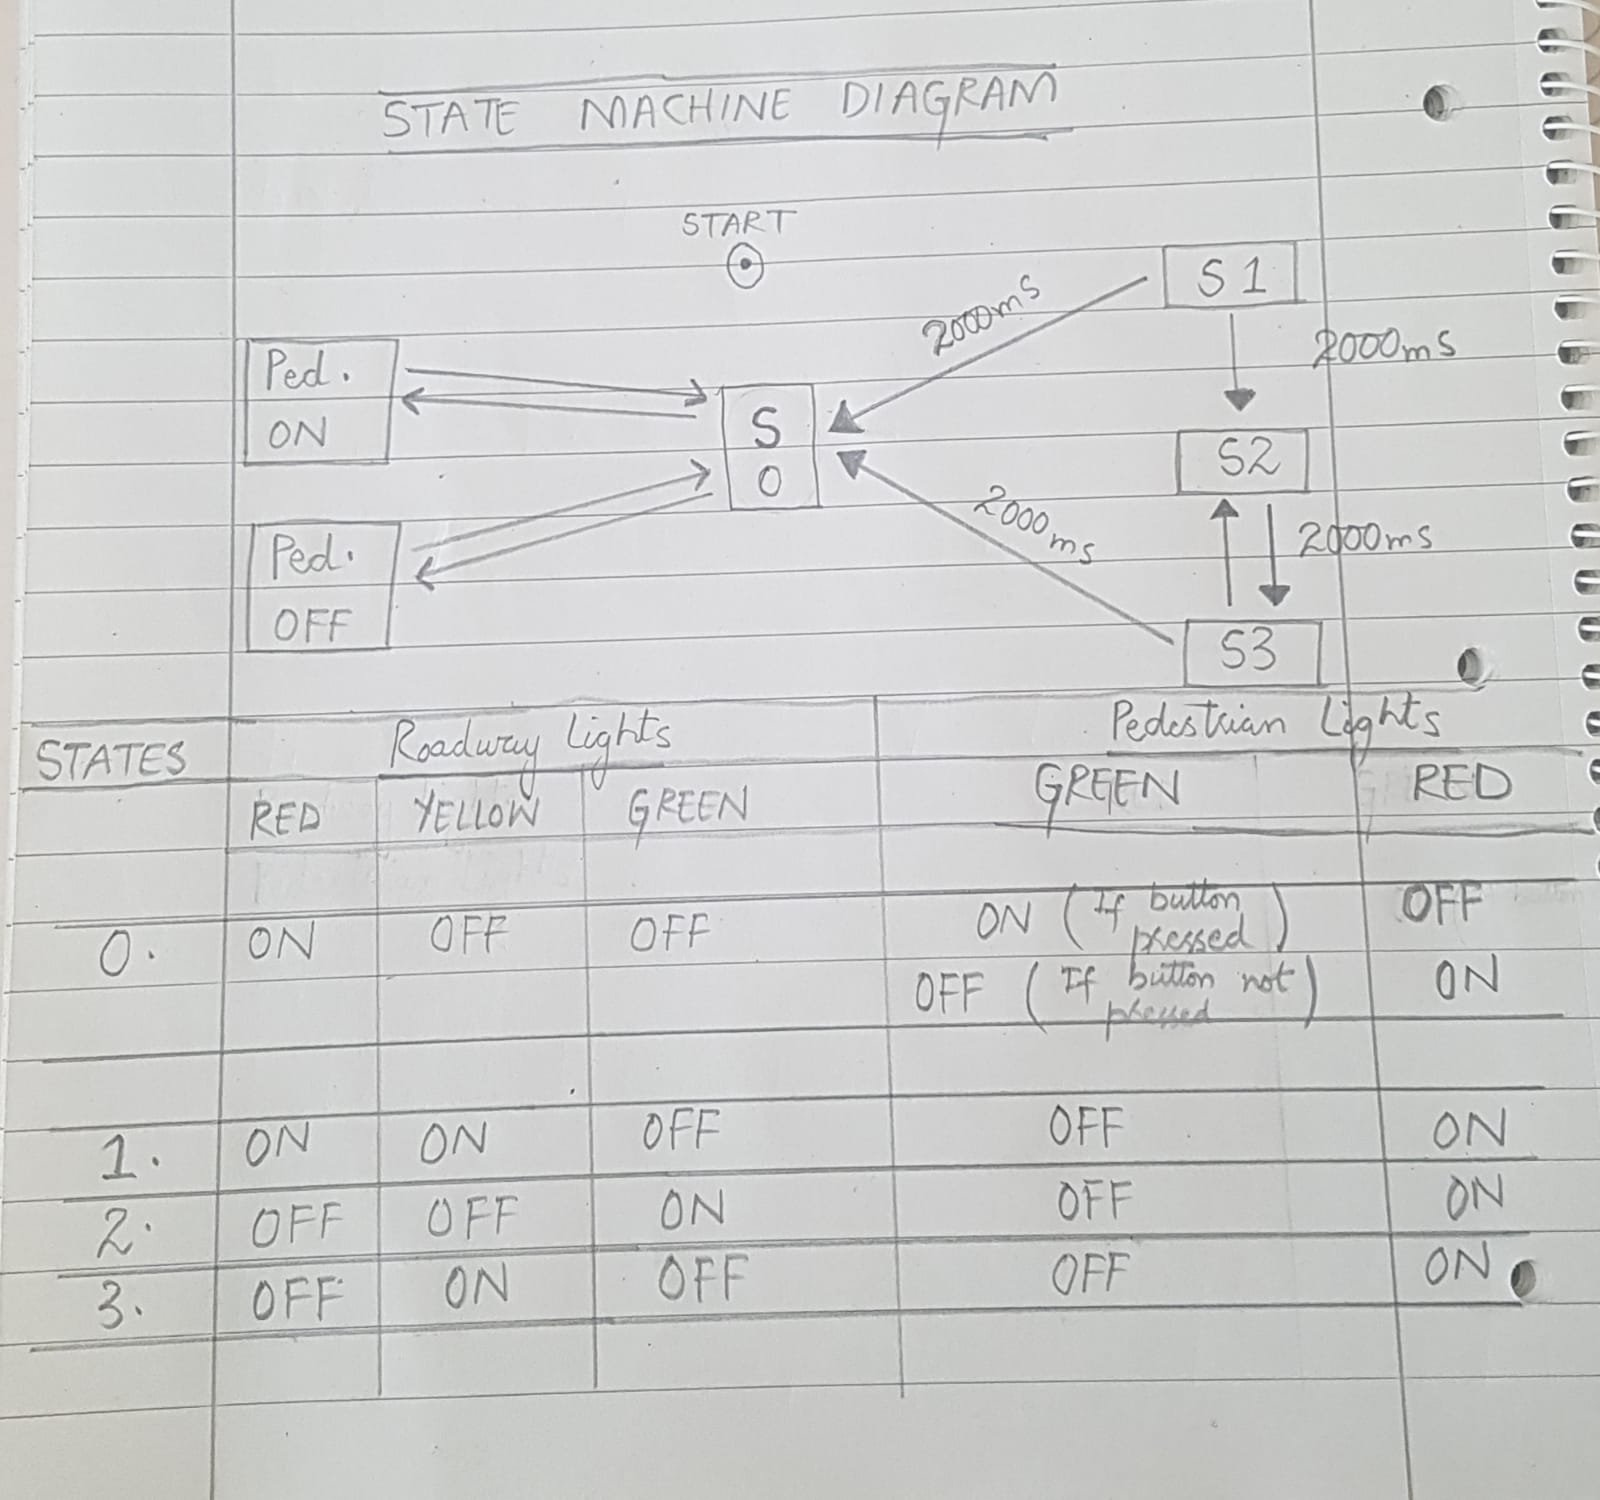 STATE MACHINE DIAGRAM
START
S 1
2000ms
2000ms
Ped.
ON
S
0
S2
2000ms
2000ms
Ped.
OFF
S3
STATES Roadway Lights Pedestrian Lights
RED YELLOW GREEN GREEN RED
0. ON OFF OFF ON (If button pressed) OFF
OFF (If button not pressed) ON
1. ON ON OFF OFF ON
2. OFF OFF ON OFF ON
3. OFF ON OFF OFF ON